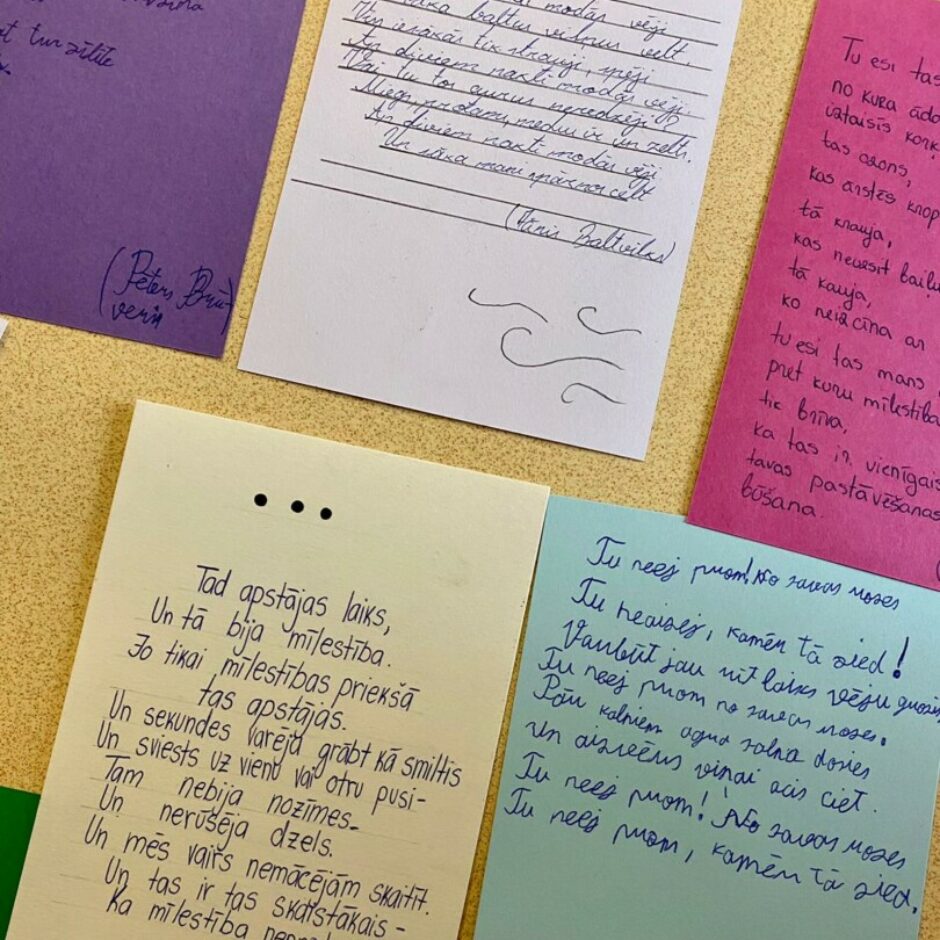 ot tur zīlīte
(Pēters Brū-
veris
modās vēji
baltus viļņus velt.
Un iesākās tik strauji, spēji
Ap diviem naktī modās vēji.
Vai tu tos aurus neredzēji?
Ap diviem naktī modās vēji
Un sāka mani spārnos celt
(Jānis Baltvilks)
Tu esi tas
no kura ādo
iztaisīs
tas ozons,
kas ārstēs krop
tā krauja,
kas neuzsit baiļu
tā kauja,
ko neizcīna ar
tu esi tas mans
pret kuru mīlestība
tik brīva,
ka tas ir vienīgais
tavas pastāvēšanas
būšana.
• • •
Tad apstājas laiks,
Un tā bija mīlestība.
Jo tikai mīlestības priekšā
tas apstājās.
Un sekundes varēja grābt kā smiltis
Un sviests uz vienu vai otru pusi-
Tam nebija nozīmes.
Un nerūsēja dzels.
Un mēs vairs nemācējām skaitīt.
Un tas ir tas skaistākais -
Ka mīlestība
Tu neej prom! No savas rozes
Tu neaizej, kamēr tā zied!
Varbūt jau rīt laiks vēju
Tu neej prom no savas rozes.
Pār kalniem agra salna dosies
Un aizvērus viņai acis ciet.
Tu neej prom! No savas rozes
Tu neej prom, kamēr tā zied.